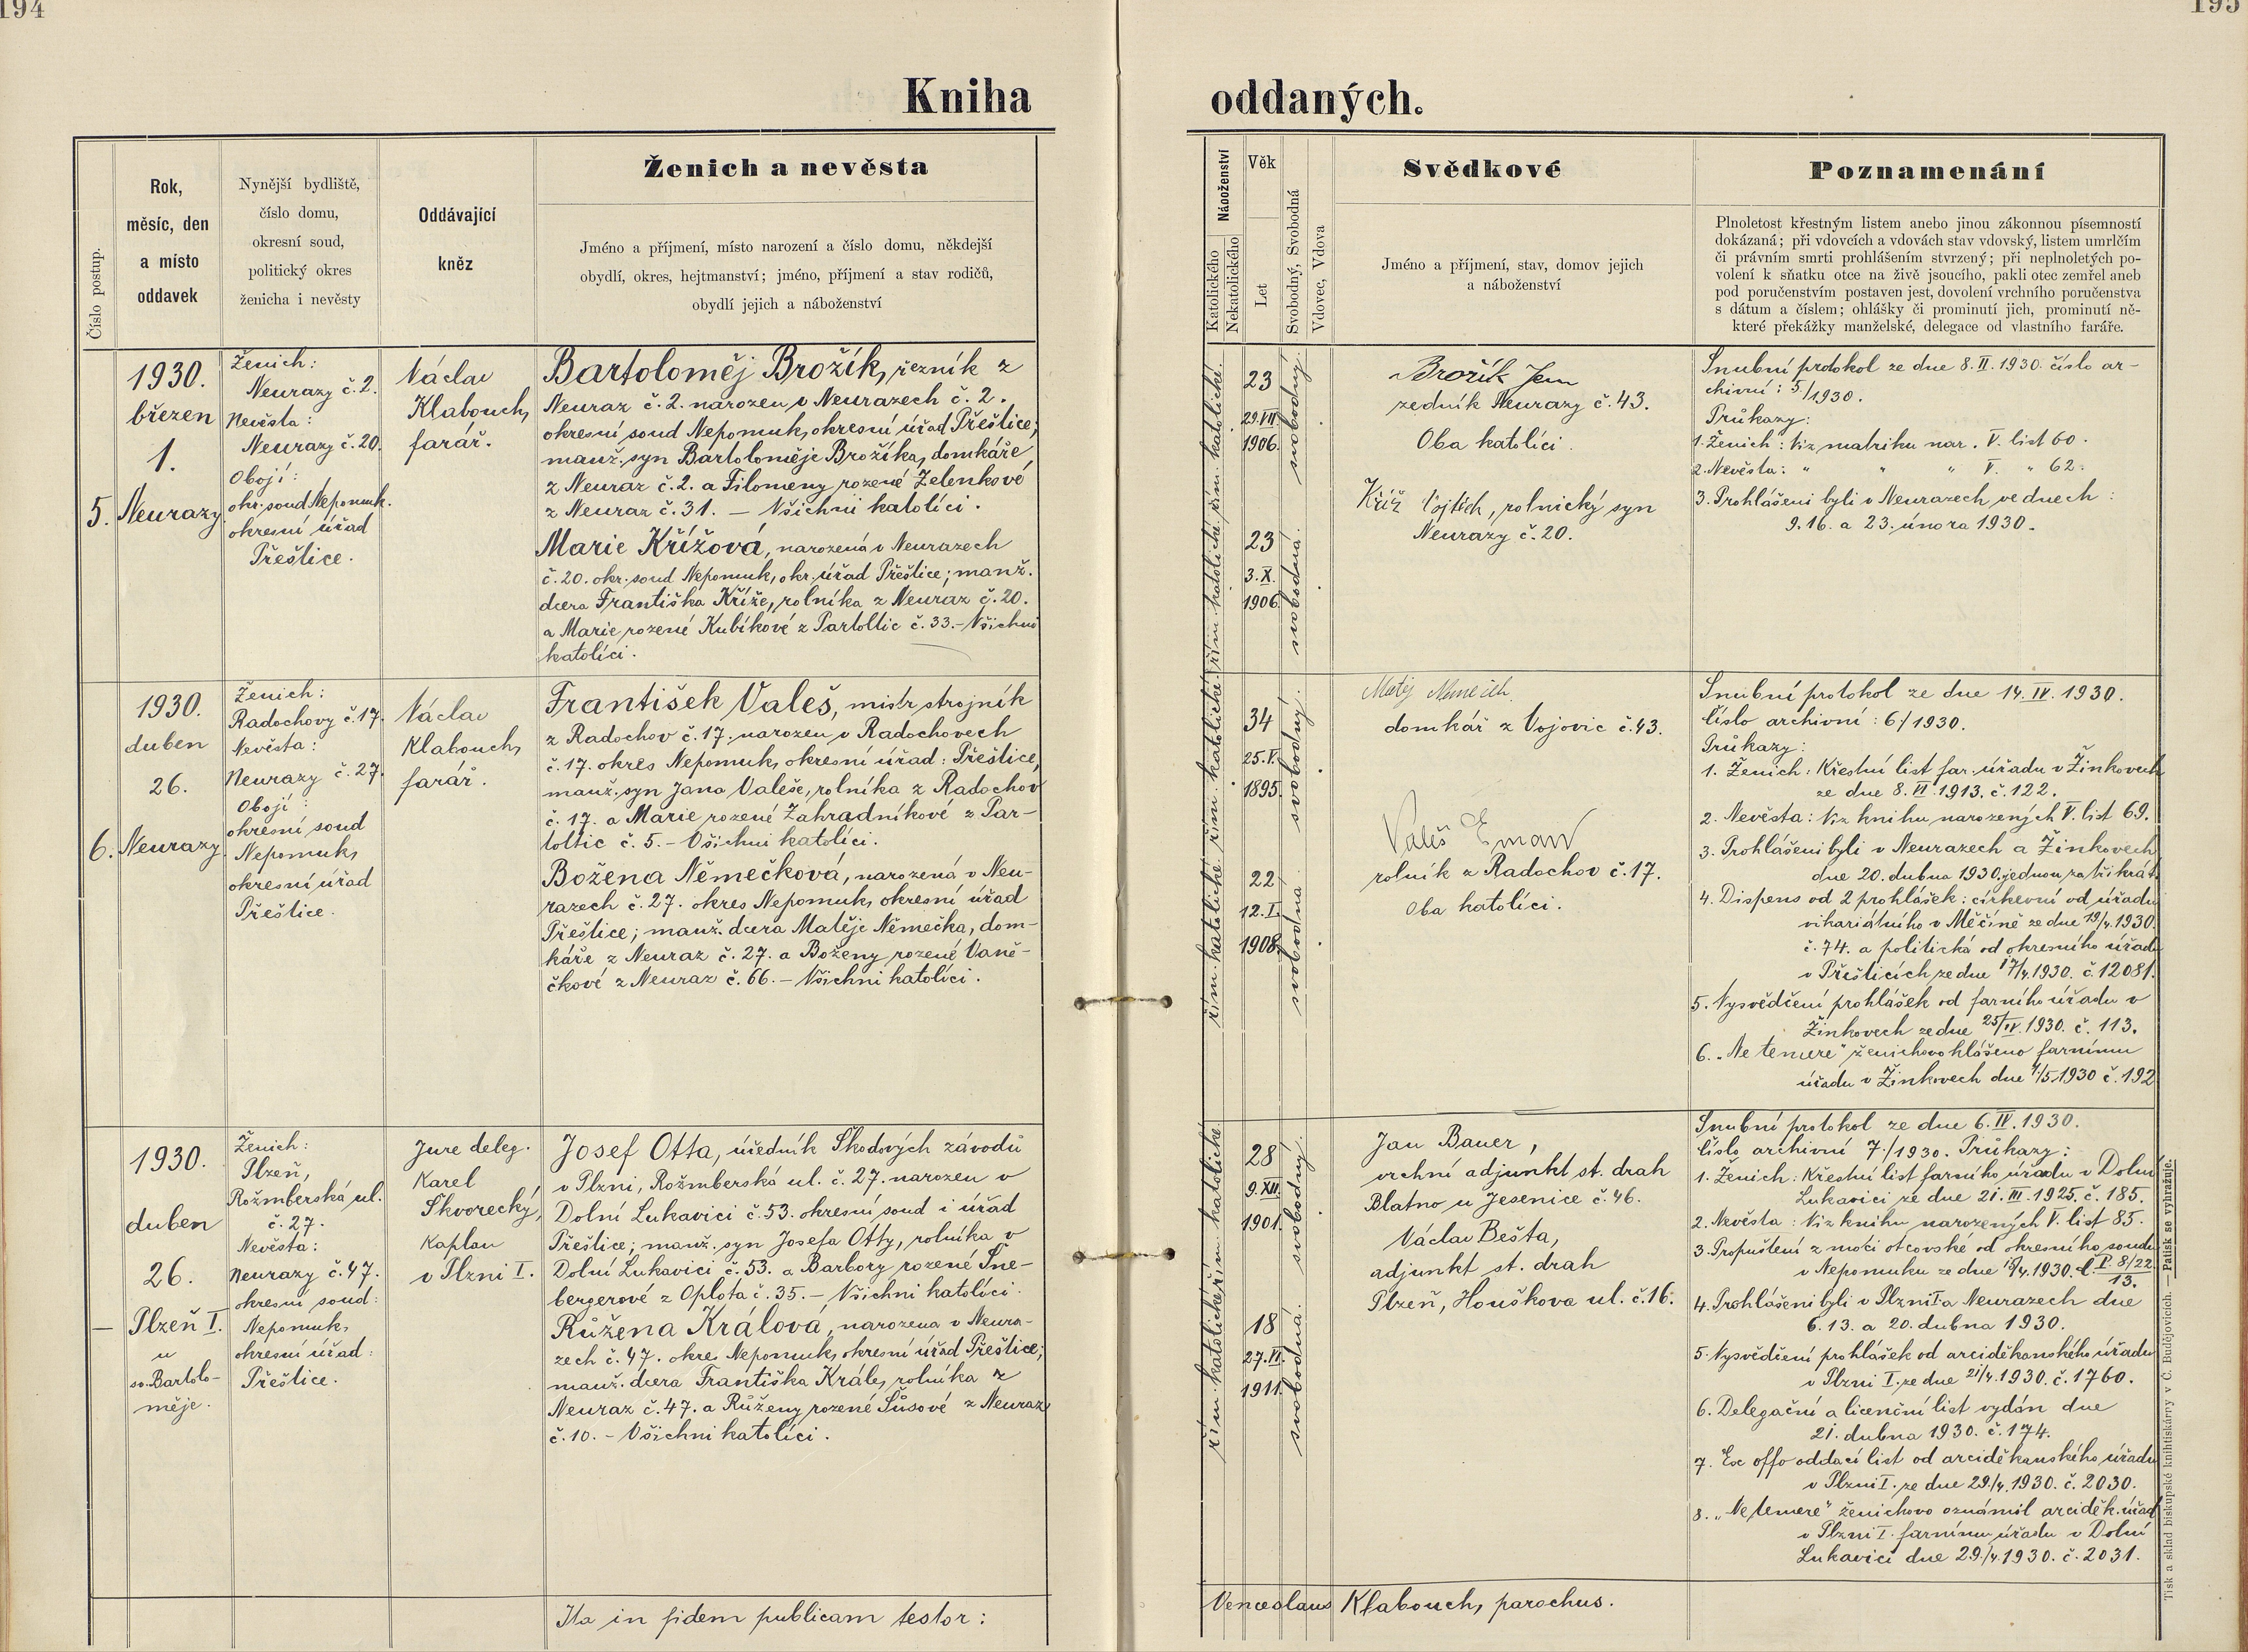 194
195
Kniha oddaných.
Číslo postup.
Rok,
měsíc, den
a místo
oddavek
Nynější bydliště,
číslo domu,
okresní soud,
politický okres
ženicha i nevěsty
Oddávající
kněz
Ženich a nevěsta
Jméno a příjmení, místo narození a číslo domu, někdejší
obydlí, okres, hejtmanství; jméno, příjmení a stav rodičů,
obydlí jejich a náboženství
Náboženství
Katolického
Nekatolického
Věk
Let
Svobodný, Svobodná
Vdovec, Vdova
Svědkové
Jméno a příjmení, stav, domov jejich
a náboženství
Poznamenání
Plnoletost křestným listem anebo jinou zákonnou písemností
dokázaná; při vdovcích a vdovách stav vdovský, listem umrlčím
či právním smrti prohlášením stvrzený; při neplnoletých po-
volení k sňatku otce na živě jsoucího, pakli otec zemřel aneb
pod poručenstvím postaven jest, dovolení vrchního poručenstva
s dátum a číslem; ohlášky či prominutí jich, prominutí ně-
které překážky manželské, delegace od vlastního faráře.
5.
1930.
březen
1.
Neurazy
Ženich:
Neurazy č. 2.
Nevěsta:
Neurazy č. 20.
Obojí:
okr. soud Nepomuk.
okresní úřad
Přeštice.
Václav
Klabouch,
farář.
Bartoloměj Brožík, řezník z
Neuraz č. 2. narozen v Neurazech č. 2.
okresní soud Nepomuk, okresní úřad Přeštice;
manž. syn Bartoloměje Brožíka, domkáře
z Neuraz č. 2. a Filomeny rozené Zelenkové
z Neuraz č. 31. – Všichni katolíci.
Marie Křížová, narozená v Neurazech
č. 20. okr. soud Nepomuk, okr. úřad Přeštice; manž.
dcera Františka Kříže, rolníka z Neuraz č. 20.
a Marie rozené Kubíkové z Partoltic č. 33. – Všichni
katolíci.
řím. katolické.
23
29. VII.
1906.
svobodný.
řím. katolické
23
3. X.
1906.
svobodná.
Brožík Jan
zedník Neurazy č. 43.
Oba katolíci.
Kříž Vojtěch, rolnický syn
Neurazy č. 20.
Snubní protokol ze dne 8. II. 1930. číslo ar-
chivní: 5/1930.
Průkazy:
1. Ženich: Viz matriku nar. V. list 60.
2. Nevěsta: " " " V. " 62.
3. Prohlášeni byli v Neurazech ve dnech:
9. 16. a 23. února 1930.
6.
1930.
duben
26.
Neurazy.
Ženich:
Radochovy č. 17.
Nevěsta:
Neurazy č. 27.
Obojí:
okresní soud
Nepomuk,
okresní úřad
Přeštice.
Václav
Klabouch,
farář.
František Valeš, mistr strojník
z Radochov č. 17. narozen v Radochovech
č. 17. okres Nepomuk, okresní úřad: Přeštice,
manž. syn Jana Valeše, rolníka z Radochov
č. 17. a Marie rozené Zahradníkové z Par-
toltic č. 5. – Všichni katolíci.
Božena Němečková, narozená v Neu-
razech č. 27. okres Nepomuk, okresní úřad
Přeštice; manž. dcera Matěje Němečka, dom-
káře z Neuraz č. 27. a Boženy rozené Vaně-
čkové z Neuraz č. 66. – Všichni katolíci.
řím. katolické
34
25. V.
1895.
svobodný.
řím. katolické
22
12. I.
1908.
svobodná
Matěj
domkář z Vojovic č. 43.
Valeš Eman
rolník z Radochov č. 17.
Oba katolíci.
Snubní protokol ze dne 14. IV. 1930.
Číslo archivní: 6/1930.
Průkazy:
1. Ženich: Křestní list far. úřadu v Žinkovech
ze dne 8. VI. 1913. č. 122.
2. Nevěsta: Viz knihu narozených V. list 69.
3. Prohlášeni byli v Neurazech a Žinkovech
dne 20. dubna 1930. jednou za třikrát.
4. Dispens od 2 prohlášek: církevní od úřadu
vikariátního v Měčíně ze dne 19/4. 1930.
č. 74. a politická od okresního úřadu
v Přešticích ze dne 17/4. 1930. č. 12081.
5. Vysvědčení prohlášek od farního úřadu v
Žinkovech ze dne 25/IV. 1930. č. 113.
6. „Ne temere" ženichovo hlášeno farnímu
úřadu v Žinkovech dne 1/5 1930 č. 192
–
1930.
duben
26.
Plzeň I.
u
sv. Bartolo-
měje.
Ženich:
Plzeň,
Rožmberská ul.
č. 27.
Nevěsta:
Neurazy č. 47.
okresní soud:
Nepomuk,
okresní úřad:
Přeštice.
Jure deleg.
Karel
Škvorecký,
kaplan
v Plzni I.
Josef Otta, úředník Škodových závodů
v Plzni, Rožmberská ul. č. 27. narozen v
Dolní Lukavici č. 53. okresní soud i úřad
Přeštice; manž. syn Josefa Otty, rolníka v
Dolní Lukavici č. 53. a Barbory rozené Šne-
bergerové z Oplota č. 35. – Všichni katolíci.
Růžena Králová, narozena v Neura-
zech č. 47. okres Nepomuk, okresní úřad Přeštice;
manž. dcera Františka Krále, rolníka z
Neuraz č. 47. a Růženy rozené Šůsové z Neuraz
č. 10. – Všichni katolíci.
řím. katolické.
28
9. XII.
1901.
svobodný.
řím. katolické
18
27. VI.
1911.
svobodná.
Jan Bauer,
vrchní adjunkt st. drah
Blatno u Jesenice č. 46.
Václav Bešta,
adjunkt st. drah
Plzeň, Houškova ul. č. 16.
Snubní protokol ze dne 6. IV. 1930.
Číslo archivní 7/1930. Průkazy:
1. Ženich: Křestní list farního úřadu v Dolní
Lukavici ze dne 21. III. 1925. č. 185.
2. Nevěsta: Viz knihu narozených V. list 85.
3. Propuštění z moci otcovské od okresního soudu
v Nepomuku ze dne 1930. P. 8/22
13.
4. Prohlášeni byli v Plzni I a Neurazech dne
6. 13. a 20. dubna 1930.
5. Vysvědčení prohlášek od arciděkanského úřadu
v Plzni I. ze dne 21/4. 1930. č. 1760.
6. Delegační a licenční list vydán dne
21. dubna 1930. č. 174.
7. Ex offo oddací list od arciděkanského úřadu
v Plzni I. ze dne 29./4. 1930. č. 2030.
8. „Ne temere" ženichovo oznámil arciděk. úřad
v Plzni I. farnímu úřadu v Dolní
Lukavici dne 29./4. 1930. č. 2031.
Ita in fidem publicam testor: Venceslaus Klabouch, parochus.
Tisk a sklad biskupské knihtiskárny v Č. Budějovicích. — Patisk se vyhražuje.